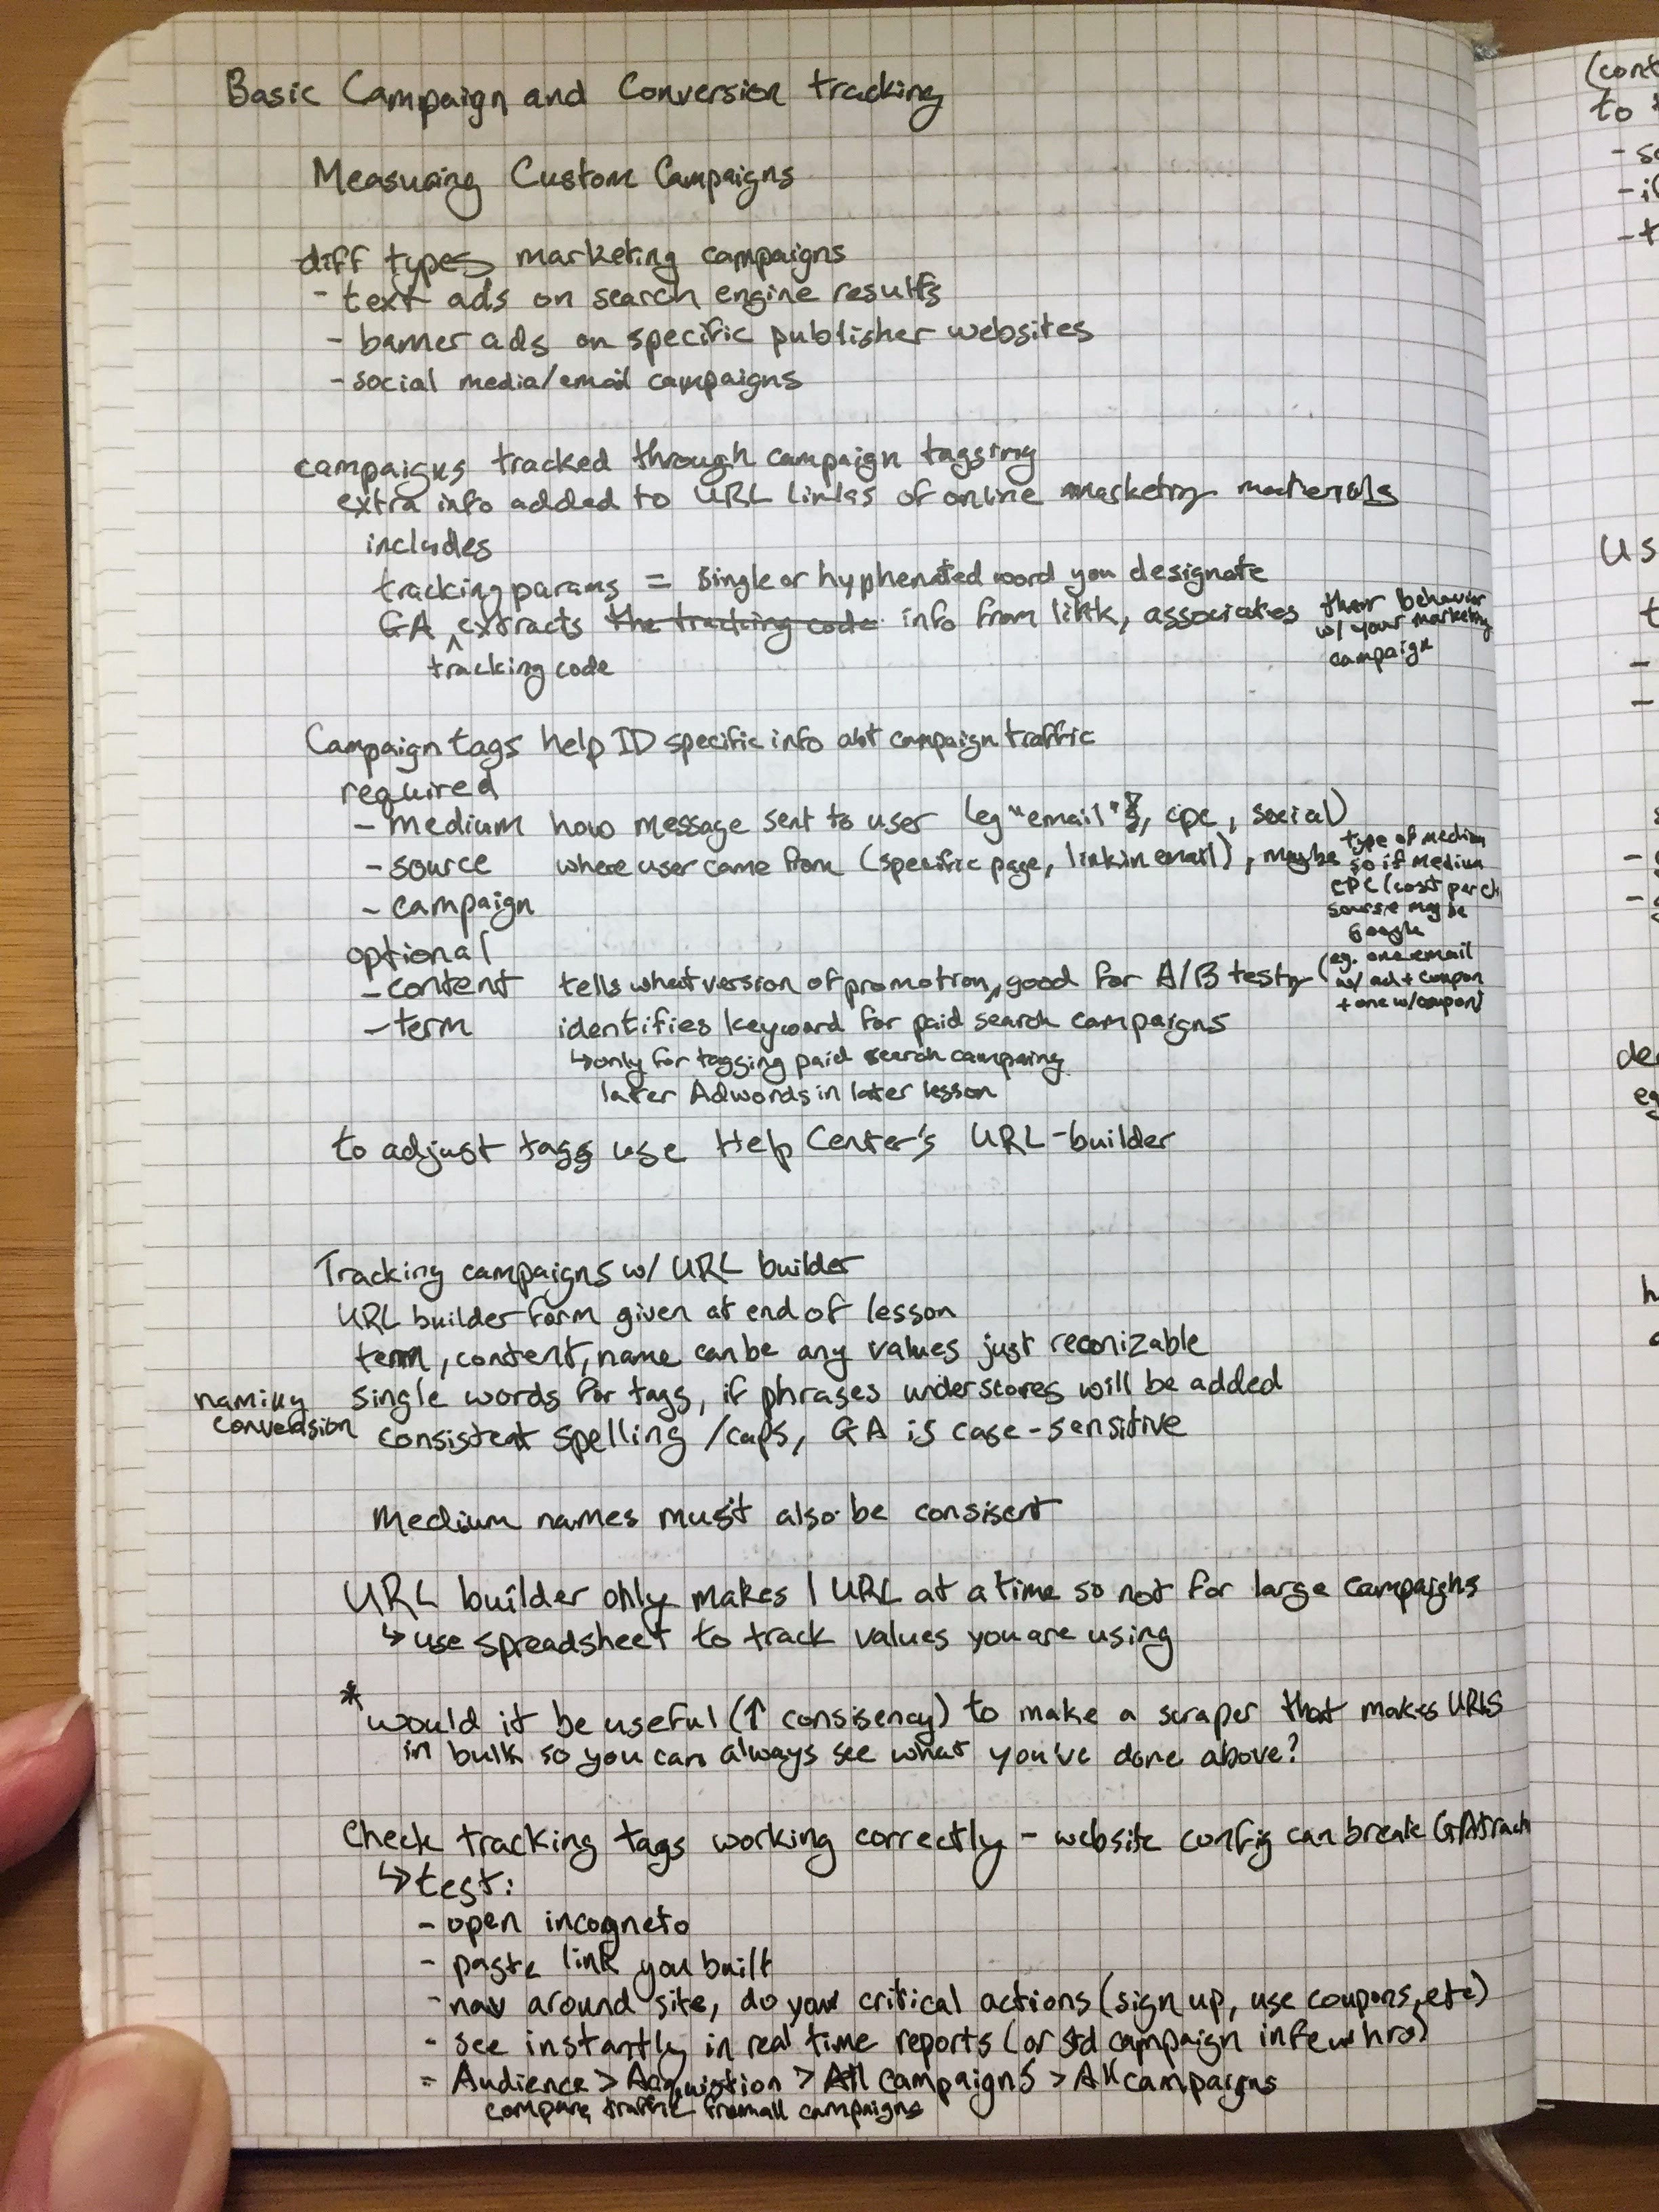 Basic Campaign and Conversion tracking
Measuring Custom Campaigns
diff types marketing campaigns
- text ads on search engine results
- banner ads on specific publisher websites
- social media/email campaigns
campaigns tracked through campaign tagging
extra info added to URL links of online marketing materials
includes
tracking params = single or hyphenated word you designate
GA ^ extracts the tracking code info from link, associates their behavior
w/ your marketing
campaign
tracking code
Campaign tags help ID specific info abt campaign traffic
required
- medium how message sent to user (eg "email", cpc, social)
- source where user came from (specific page, link in email), maybe type of medium
so if medium
CPC (cost per c
source may be
google
- campaign
optional
- content tells what version of promotion, good for A/B testing (eg. one email
w/ ad + coupon
+ one w/coupon)
- term identifies keyword for paid search campaigns
↳ only for tagging paid search campaing
later Adwords in later lesson
to adjust tags use Help Center's URL-builder
Tracking campaigns w/ URL builder
URL builder form given at end of lesson
term, content, name can be any values just reconizable
naming
conversion
single words for tags, if phrases underscores will be added
consistent spelling /caps, GA is case-sensitive
Medium names must also be consisent
URL builder only makes 1 URL at a time so not for large campaigns
↳ use spreadsheet to track values you are using
* would it be useful (↑ consisency) to make a scraper that makes URLS
in bulk so you can always see what you've done above?
Check tracking tags working correctly - website config can break GA track
↳ test:
- open incogneto
- paste link you built
- nav around site, do your critical actions (sign up, use coupons, etc)
- see instantly in real time reports (or std campaign in few hrs)
- Audience > Acquistion > All campaigns > All campaigns
compare traffic from all campaigns
(cont
to
- so
- i
- t
US
t
-
-
-
-
de
eg
h